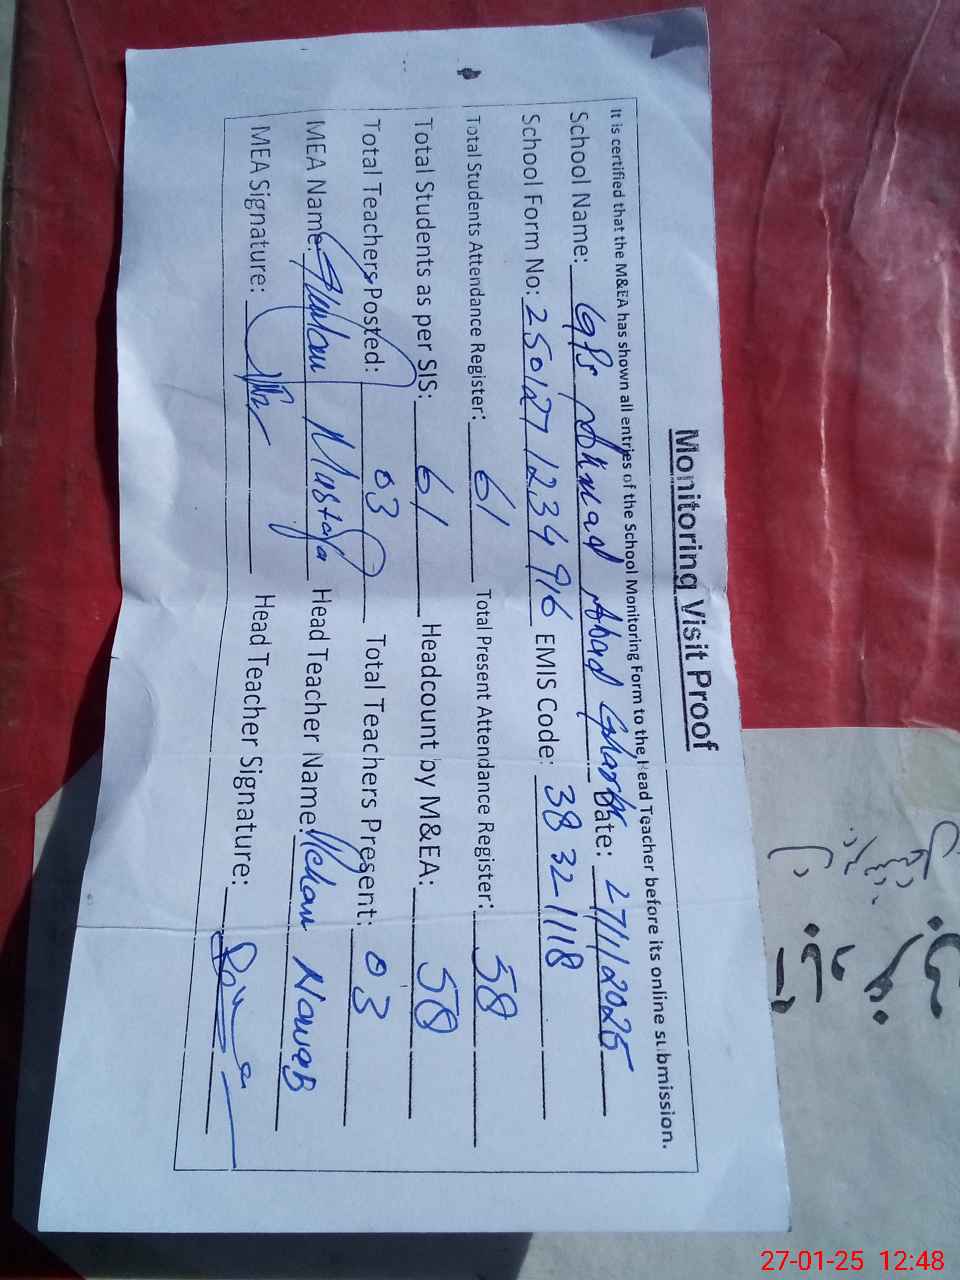 Monitoring Visit Proof
It is certified that the M&EA has shown all entries of the School Monitoring Form to the Head Teacher before its online submission.
School Name: GPS Ahmad Abad Gharbi Date: 27/1/2025
School Form No: 250127123496 EMIS Code: 38321118
Total Students Attendance Register: 61 Total Present Attendance Register: 58
Total Students as per SIS: 61 Headcount by M&EA: 58
Total Teachers Posted: 03 Total Teachers Present: 03
MEA Name: Ghulam Mustafa Head Teacher Name: Nawab
MEA Signature: Head Teacher Signature:
27-01-25 12:48